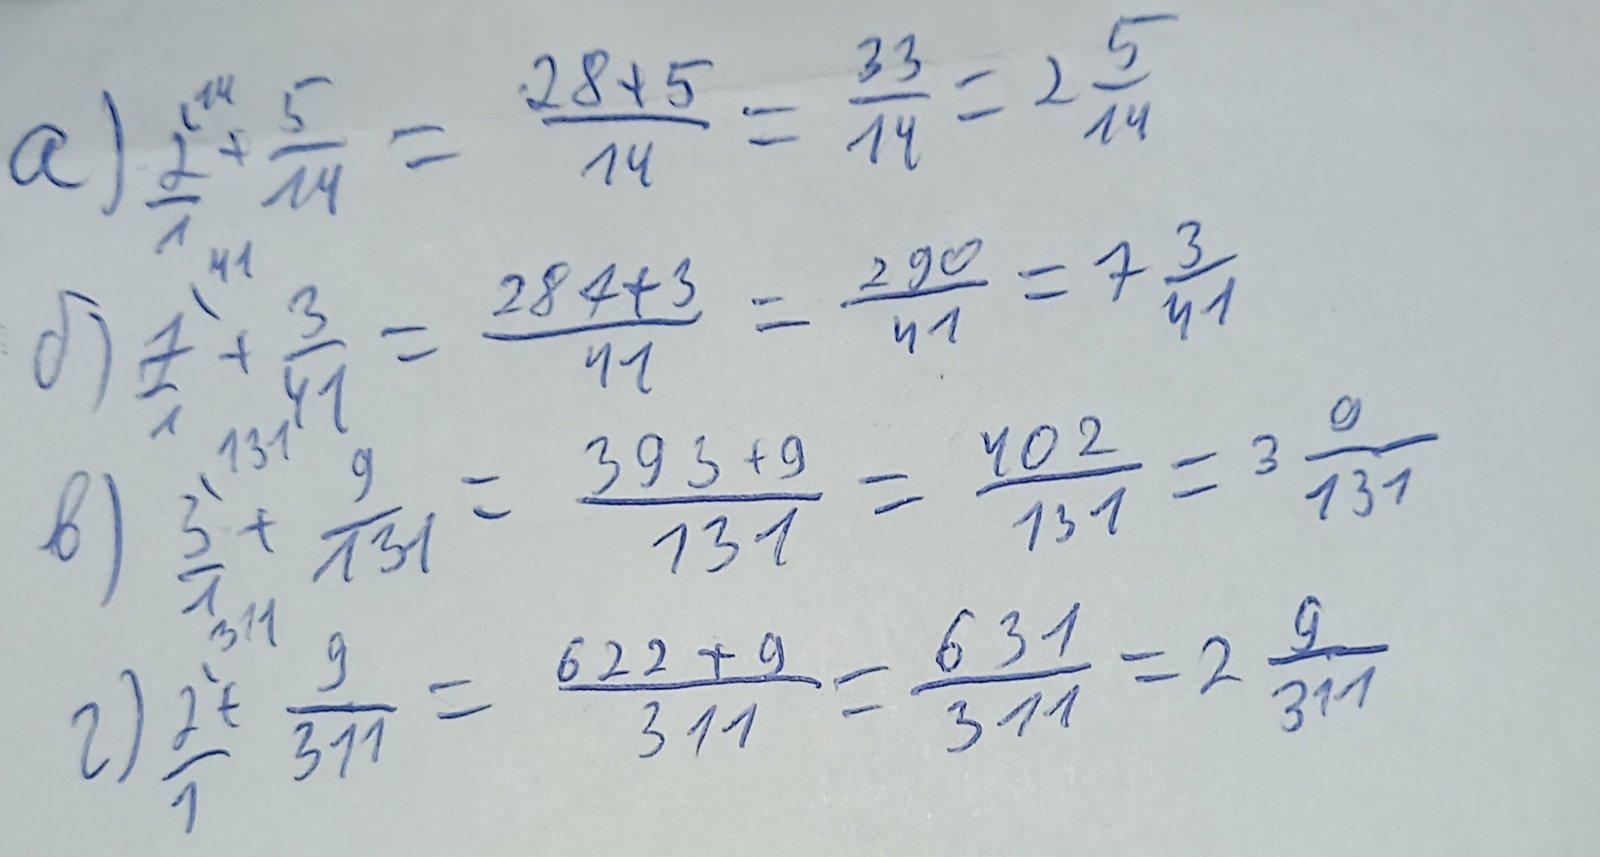 а) 2/1 ^14 + 5/14 = (28+5)/14 = 33/14 = 2 5/14
б) 7/1 ^41 + 3/41 = (287+3)/41 = 290/41 = 7 3/41
в) 3/1 ^131 + 9/131 = (393+9)/131 = 402/131 = 3 9/131
г) 2/1 ^311 + 9/311 = (622+9)/311 = 631/311 = 2 9/311